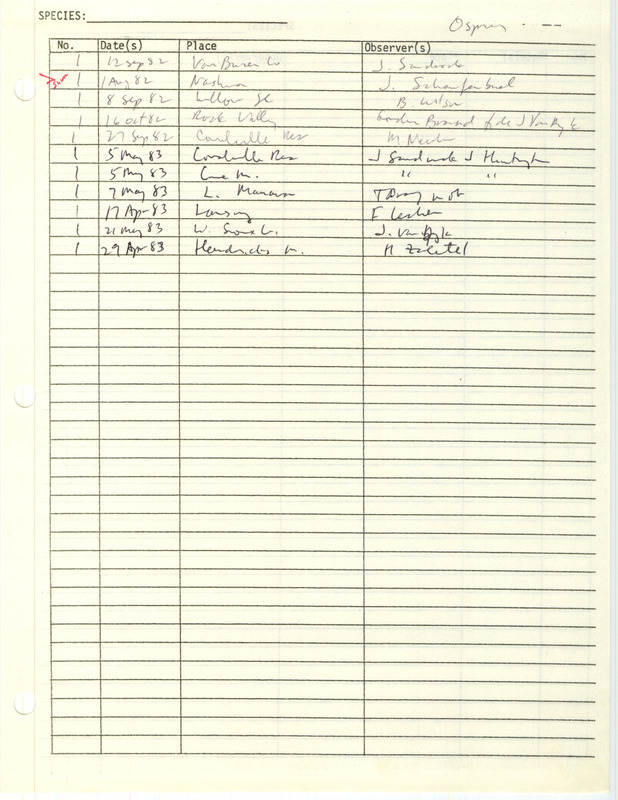 SPECIES: Osprey
No. Date(s) Place Observer(s)
1 12 Sep 82 Van Buren Co J. Sandrock
1 1 Aug 82 Nashua J.
1 8 Sep 82 Willow Sl B. Wilson
1 16 Oct 82 Rock Valley J Van Dyk
1 27 Sep 82 Coralville Res M Newlon
1 5 May 83 Coralville Res J Sandrock J Huntington
1 5 May 83 Cone M. " "
1 7 May 83 L. Manawa
1 17 Apr 83 Lansing F Lesher
1 21 May 83 W. Sioux Co. J. Van Dyk
1 29 Apr 83 Hendrickson M. H Zaletel